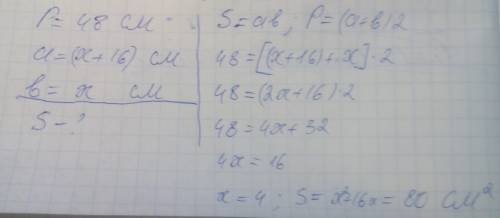 P = 48 см
a = (x+16) см
b = x см
S - ?
S = ab ; P = (a+b)2
48 = [(x+16)+x]·2
48 = (2x+16)·2
48 = 4x+32
4x = 16
x = 4 ; S = x²+16x = 80 см²